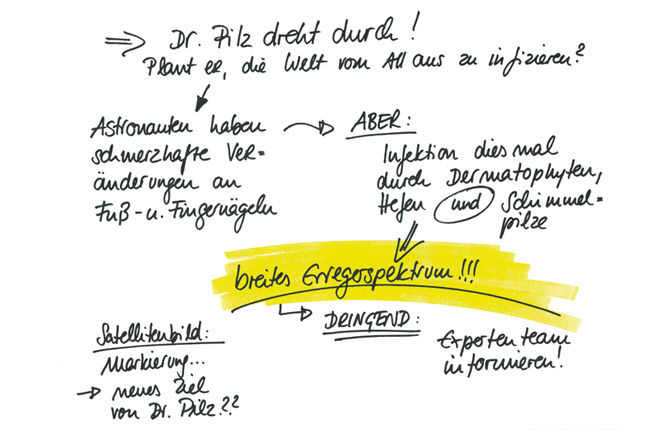 ⇒ Dr. Pilz dreht durch!
Plant er, die Welt vom All aus zu infizieren?
Astronauten haben
schmerzhafte Ver=
änderungen an
Fuß- u. Fingernägeln
→ ABER:
Infektion diesmal
durch Dermatophyten,
Hefen und Schimmel=
pilze
breites Erregerspektrum!!!
→ DRINGEND:
Expertenteam
informieren!
Satellitenbild:
Markierung...
→ neues Ziel
von Dr. Pilz??